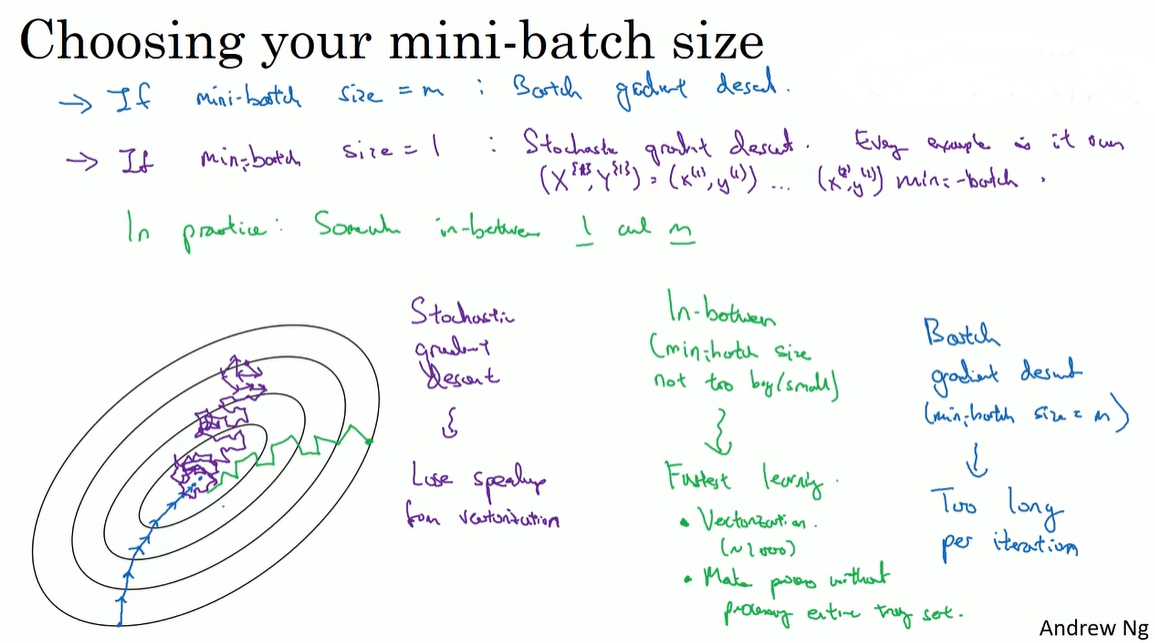 Choosing your mini-batch size
→ If mini-batch size = m : Batch gradient descent.
→ If mini-batch size = 1 : Stochastic gradient descent. Every example is it own
(X^{1}, Y^{1}) = (x^(1), y^(1)) ... (x^(2), y^(2)) mini-batch.
In practice: Somewh in-between 1 and m
Stochastic
gradient
descent
Lose speedup
from vectorization
In-between
(mini-batch size
not too big/small)
Fastest learning.
• Vectorization.
(~1000)
• Make progress without
processing entire training set.
Batch
gradient descent
(mini-batch size = m)
Too long
per iteration
Andrew Ng